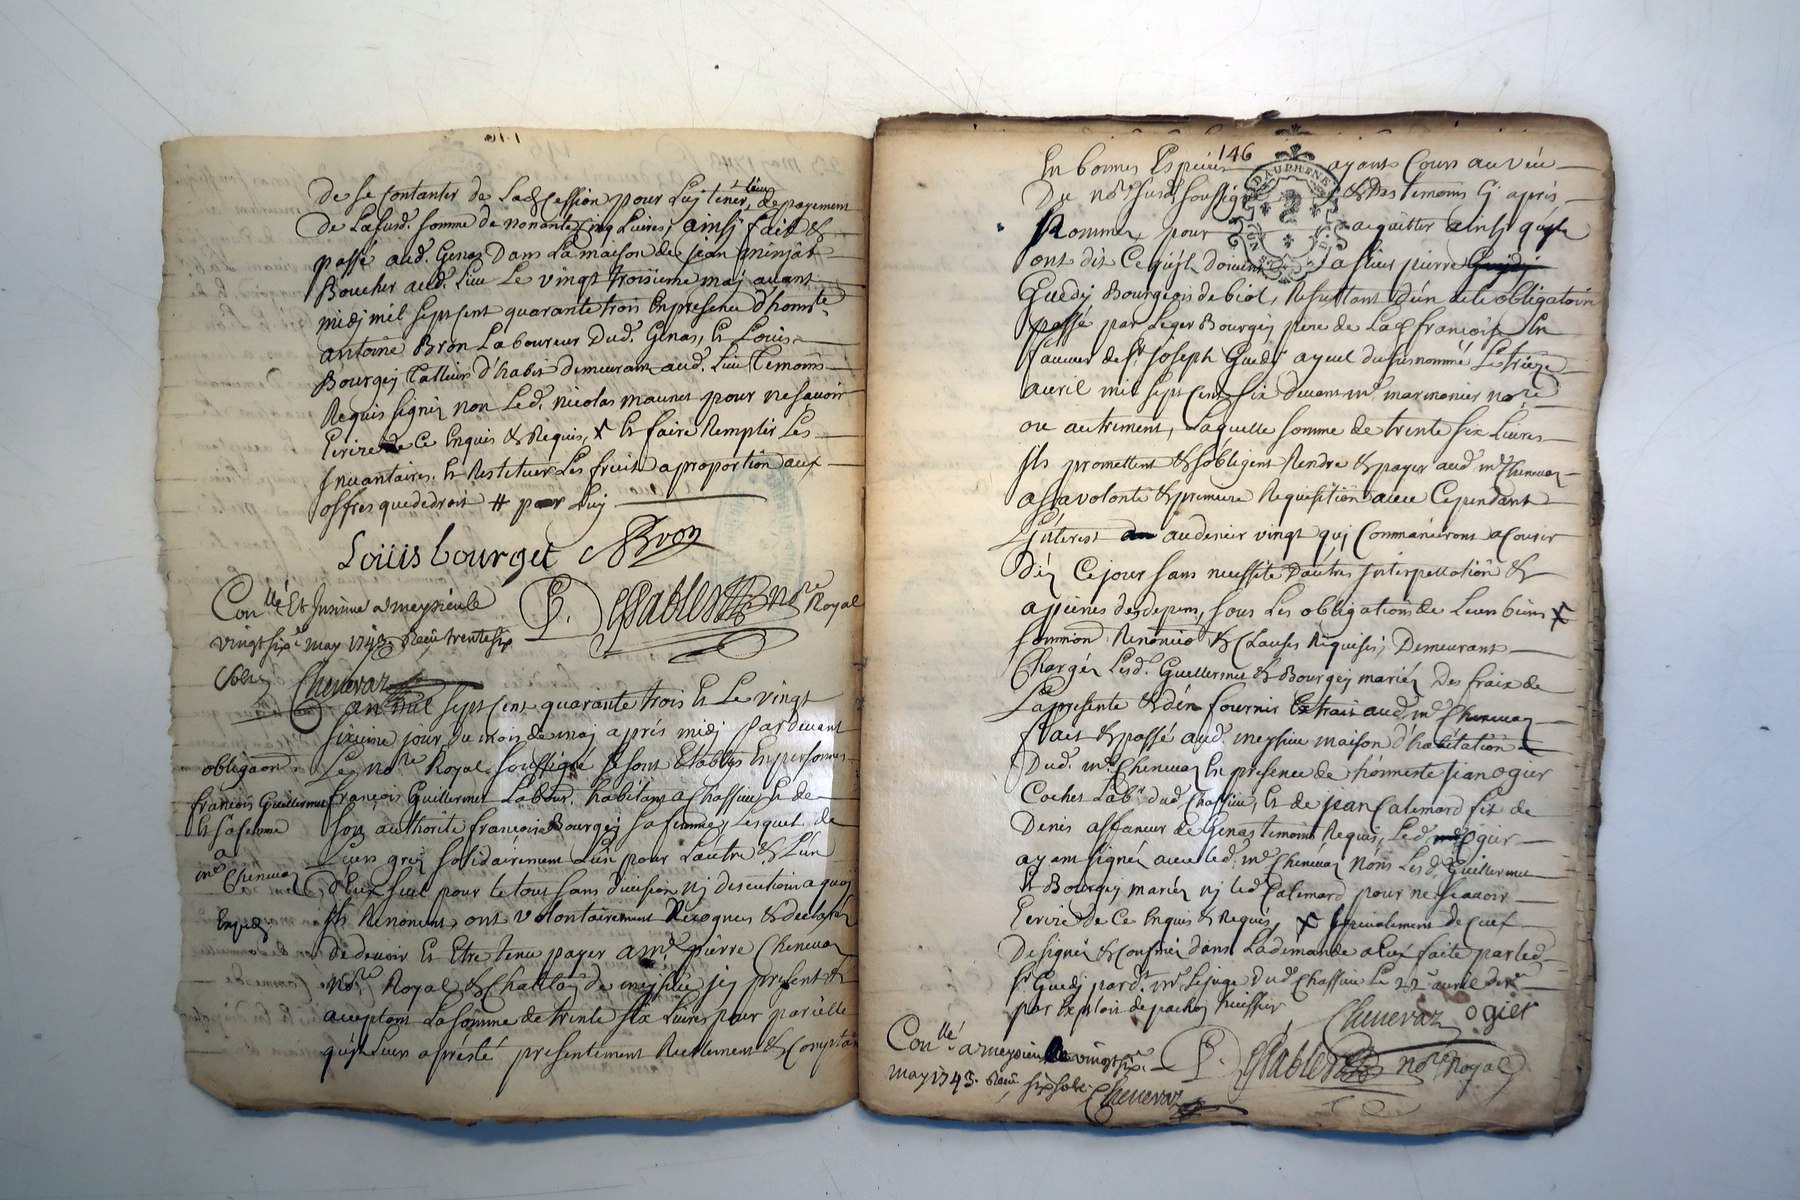 de se contanter de Lad. Cession pour Luy tenir lieu de payement
de La susd. somme de nonante cinq Livres, ainsy fait &
passé aud. Genas Dans La maison de jean minjat
Boucher aud. Lieu Le vingt troisieme maj avant
midj mil sept cent quarante trois En presence d'honnte.
antoine Bron Laboureur Dud. Genas, Et Louis
Bourgey Tailleur d'habit demeurant aud. Lieu Temoins
Requis signés non Led. nicolas maunet pour ne savoir
Ecrire de Ce Enquis & Requis, x Et faire Remplir Les
Inventaires, Et Restituer Les fruit a proportion aux
offres que de droit # par Luy
Loüis bourget Bron
Conllé Et Insinué a meysieu Le
vingt six.e may 1743. Receu trente six
sols
P. DesSables nore Royal
Chenevaz
an mil sept cent quarante trois Et Le vingt
sixieme jour du mois de maj aprés midj pardevant
obligaon.
Le nore. Royal soussigné se sont Etablys En personnes
francois Guillermet
francois Guillermet Labour. habitant a Chassieu, Et de
Et sa femme
son authorité francoise Bourgey sa femme, Lesquel de
a
Leurs grez solidairement L'un pour L'autre & L'un
me. Chenevaz
d'Eux seul pour le tout sans division nj discution a quoj
Exped.
Ils Renoncent, ont volontairement Reconnus & declarés
de devoir Et Etre tenu payer a me. pierre Chenevaz
nore. Royal & Chattelain de meysieu jcy present &
aceptant La somme de trente six Livres pour pareille
qu'jl Leurs a presté presentement Reelement & Comptan
146
En bonnes Especes ayant Cours au veu
DAUPHINE
Du nore. susd. soussigné & Des temoins Cy aprés
Nommés pour acquitter ainsy qu'jls
ont dit Ce qu'jls doivent a sieur pierre
Guedy Bourgeois de biol, Resultant d'un acte obligatoire
passé par Leger Bourgey pere de Lad. francoise En
faveur de sr. Joseph Guedy ayeul du susnommé Le treize
avril mil sept Cent six Devant me. marmonier nore
ou autrement, Laquelle somme de trente six Livres
Ils promettent & s'obligent Rendre & payer aud. me. Chenevaz
a sa volonté & premiere Requisition avec Cependant
L'jnterest au denier vingt quj Commanceront a Courir
Déz Ce jour sans necessité D'autres jnterpellation &
a peines des depens, sous Les obligations de Leurs biens x
soumion Renoncion & Clauses Requises; Demeurant
Chargés Lesd. Guillermet & Bourgey mariés Des fraix de
La presente & d'en fournir Extrait aud. me. Chenevaz
fait & passé aud. meysieu maison d'habitation
Dud. me. Chenevaz En presence de honneste jean ogier
Cochet Labr. dud. Chassieu, Et de jean Calemard fils de
Denis affaneur de Genas temoins Requis, Led. ogier
ayant signé avec led. me. Chenevaz Nons Lesd. Guillermet
Et Bourgey mariés nj led. Calemard pour ne scavoir
Ecrire de Ce Enquis & Requis, x
Designé & Confiné dans La demande a Eux faite par led.
sr. Guedj pard.t mr. Le juge Dud. Chassieu Le 22e avril der.
par Exploit de pachoz huissier
Chenevaz ogier
Conllé. a meysieu Le vingt six.e
may 1743. Receu six sols
P. DesSables nore Royal
Chenevaz